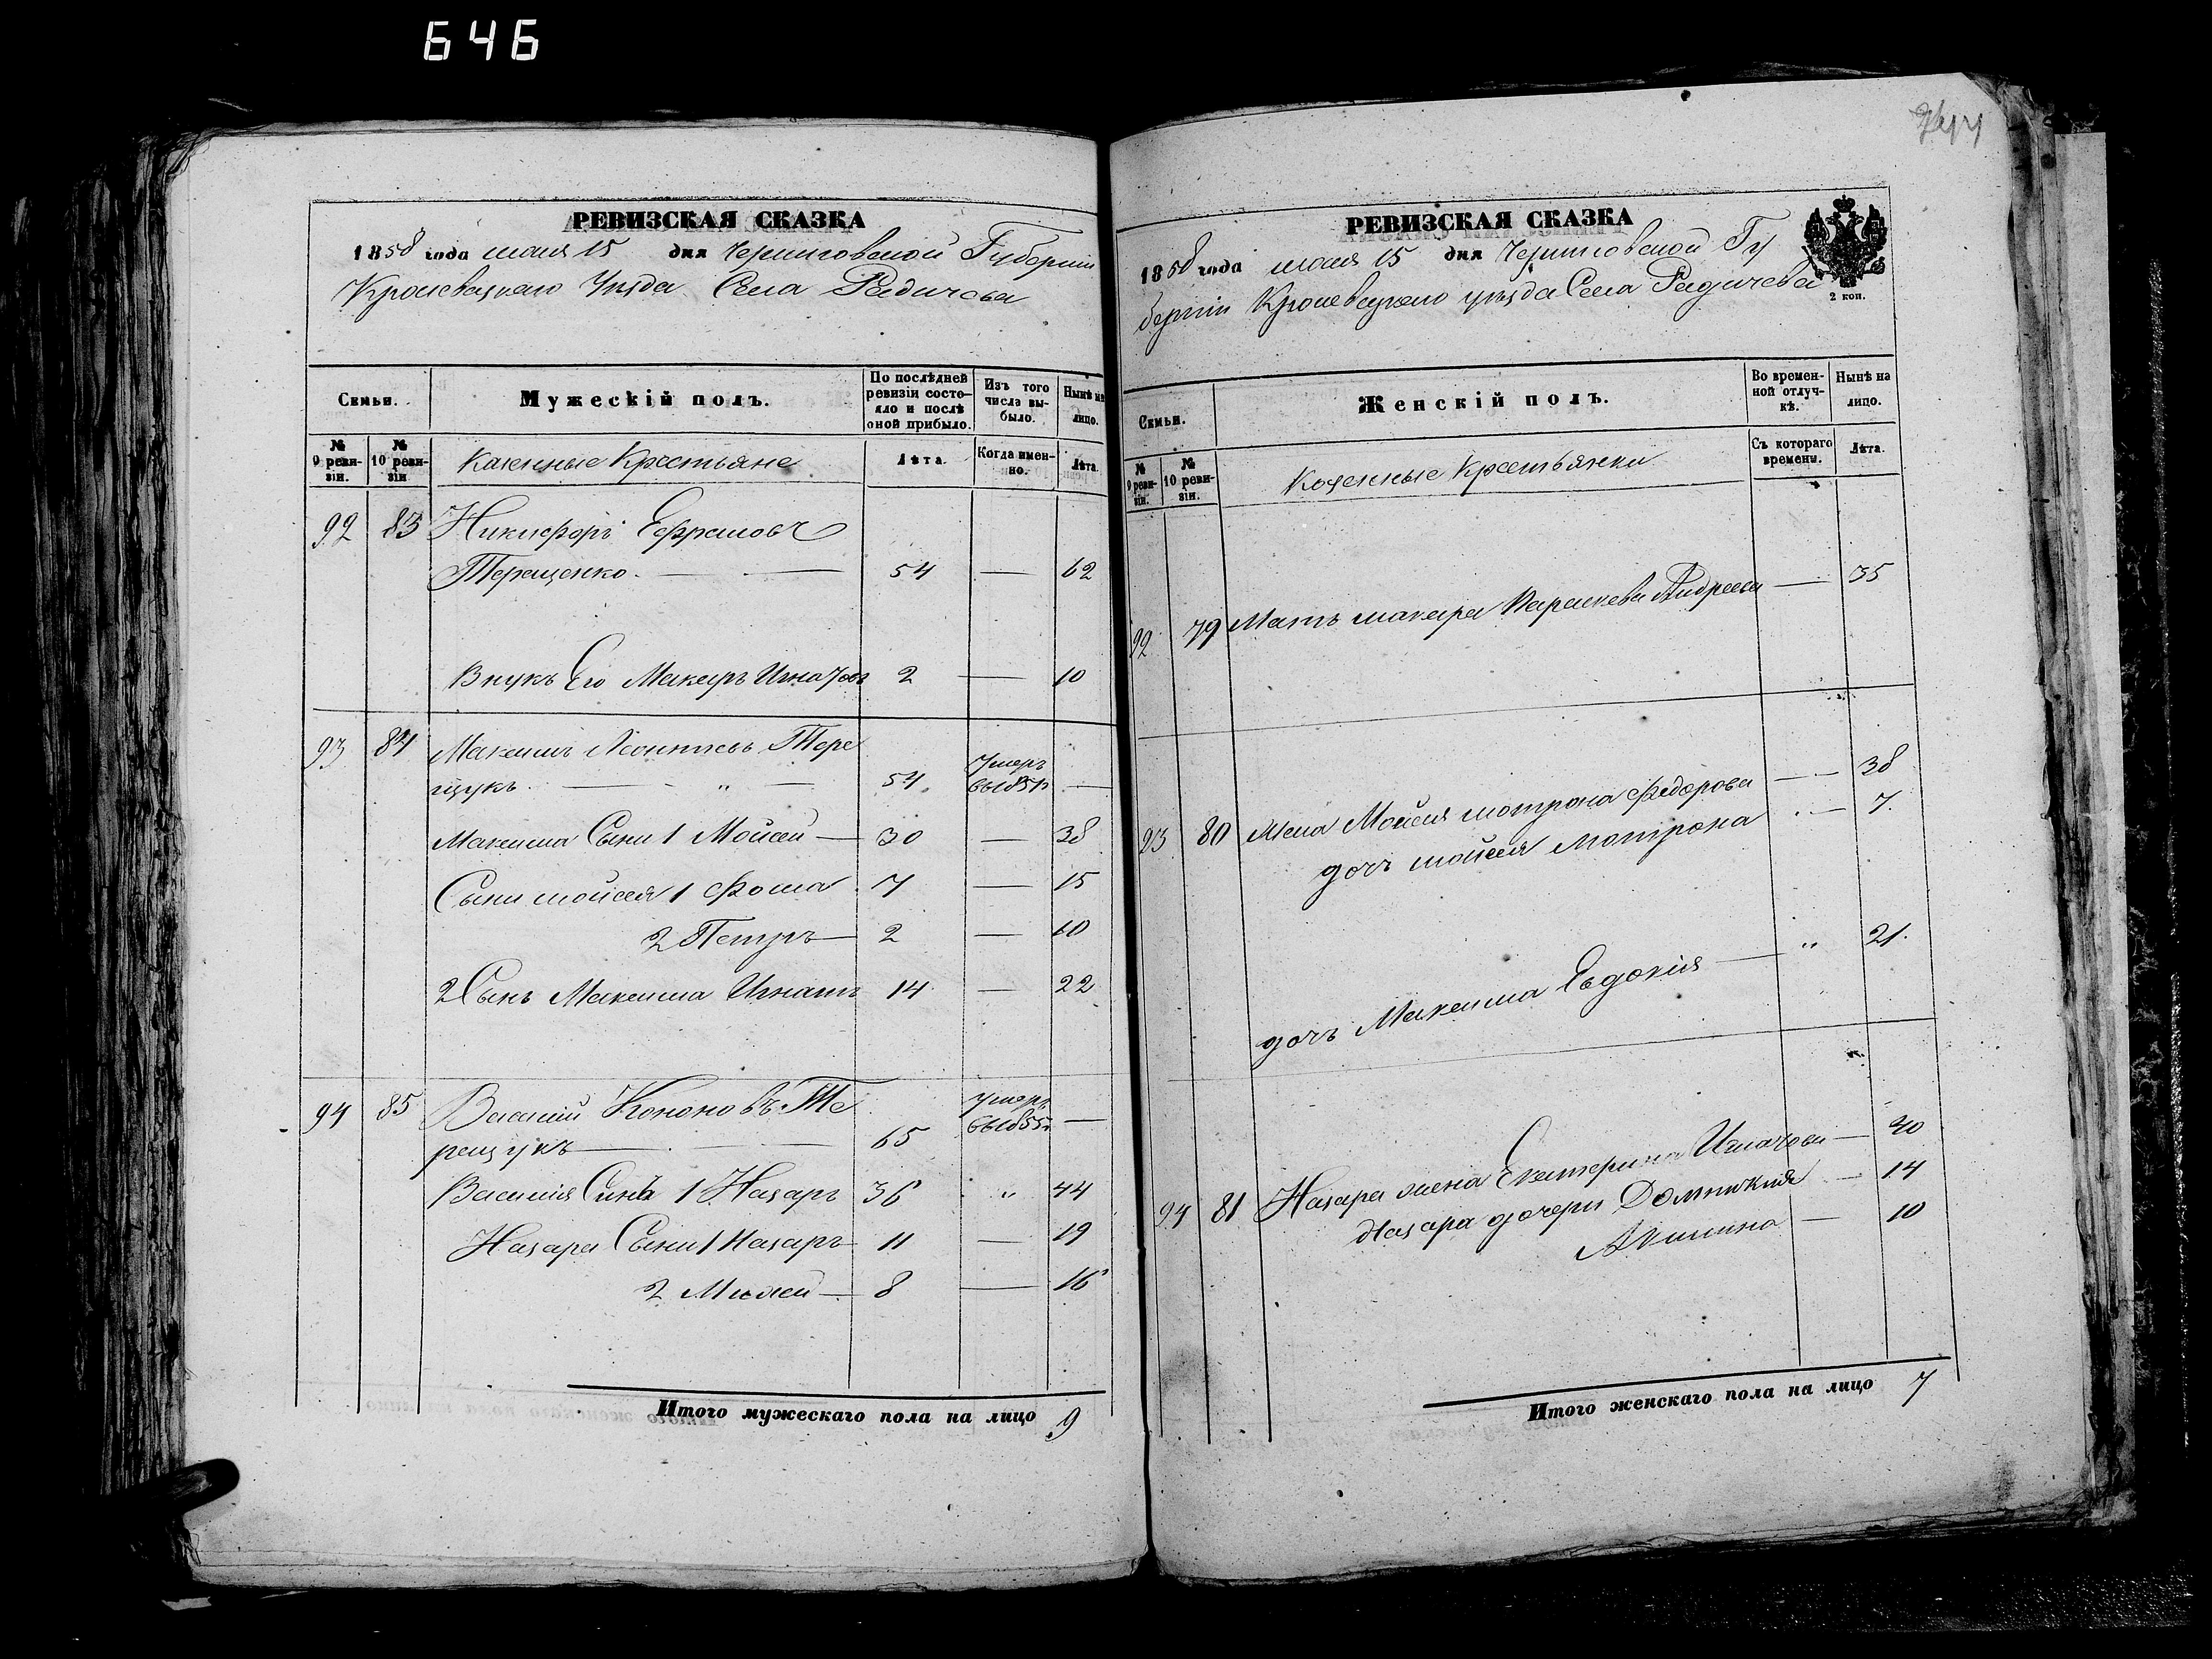 646
РЕВИЗСКАЯ СКАЗКА
1858 года июня 15 дня Черниговской Губерніи
Кролевецкаго Уезда Села Радичева
Семьи.
Мужескій полъ.
По послѣдней ревизіи состояло и послѣ оной прибыло.
Изъ того числа выбыло.
Нынѣ на лицо.
№ 9 ревизіи.
№ 10 ревизіи
Казенные Крестьяне
Лѣта.
Когда именно.
Лѣта.
92 83 Никифоръ Ефремовъ
Терещенко. 54 — 62
Внукъ Его Макаръ Игнатовъ 2 — 10
93 84 Максимъ Леонтіевъ Тере
щукъ 54 умеръ —
Максима Сыны 1 Мойсей — 30 — 38
Сыны мойсея 1 Фома 7 — 15
2 Петръ — 2 — 10
2 Сынъ Максима Игнатъ 14 — 22
94 85 Василий Кононовъ Те
рещукъ — 65 умеръ —
Василия Синъ 1 Назаръ 36 " 44
Назара Сыны 1 Назаръ 11 — 19
2 — 8 — 16
Итого мужескаго пола на лицо 9
РЕВИЗСКАЯ СКАЗКА
1858 года июня 15 дня Черниговской Гу
берніи Кролевецкаго уезда Села Радичева
2 коп.
Семьи.
Женскій полъ.
Во временной отлучкѣ.
Нынѣ на лицо.
№ 9 ревизіи.
№ 10 ревизіи.
Козенные Крестьянки
Съ котораго времены.
Лѣта.
92 79 Мать макара Параскева Андреева — 35
93 80 Жена Мойсея мотрона Федорова — 38
дочъ мойсея мотрона — 7.
дочъ Максима Евдокія — " 21.
94 81 Назара жена Екатерина Игнатова — 40
Назара дочери Домникия — 14
Акилина — 10
Итого женскаго пола на лицо 7